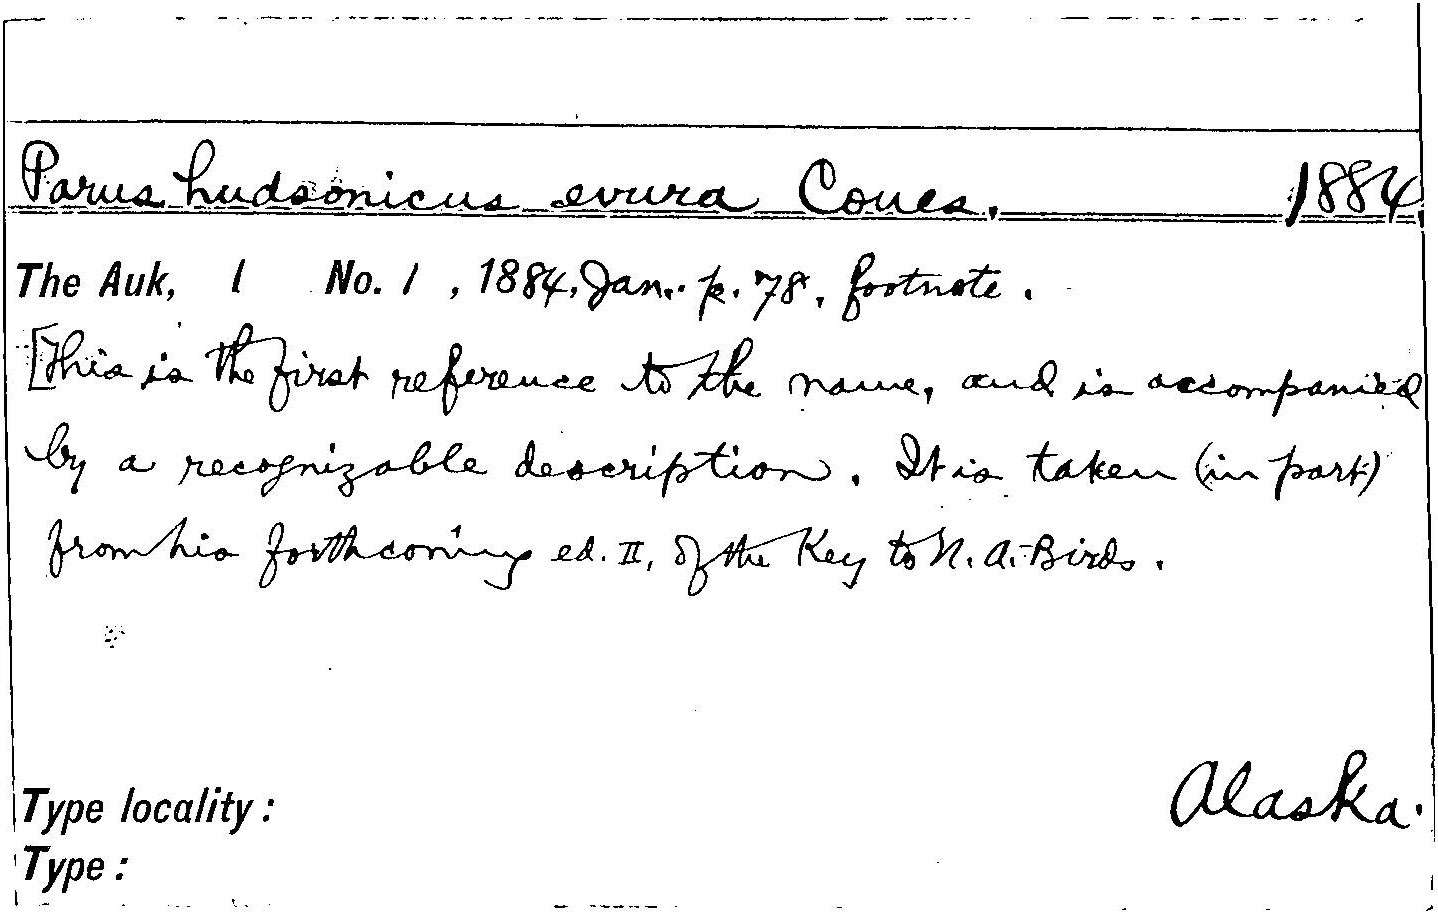 Parus hudsonicus evura Coues. 1884.
The Auk, 1 No. 1, 1884, Jan.. p. 78, footnote.
[This is the first reference to the name, and is accompanied
by a recognizable description. It is taken (in part)
from his forthcoming ed. II, of the Key to N. A. Birds.
Alaska.
Type locality:
Type: